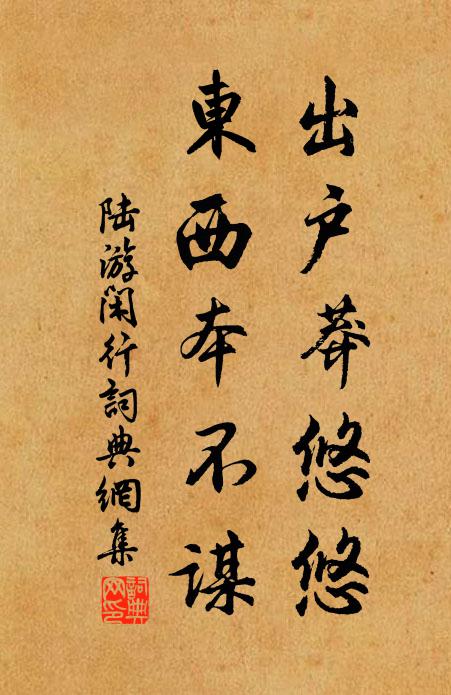 出户莽悠悠
東西本不謀
陆游閑行詞典網集
詞典網印